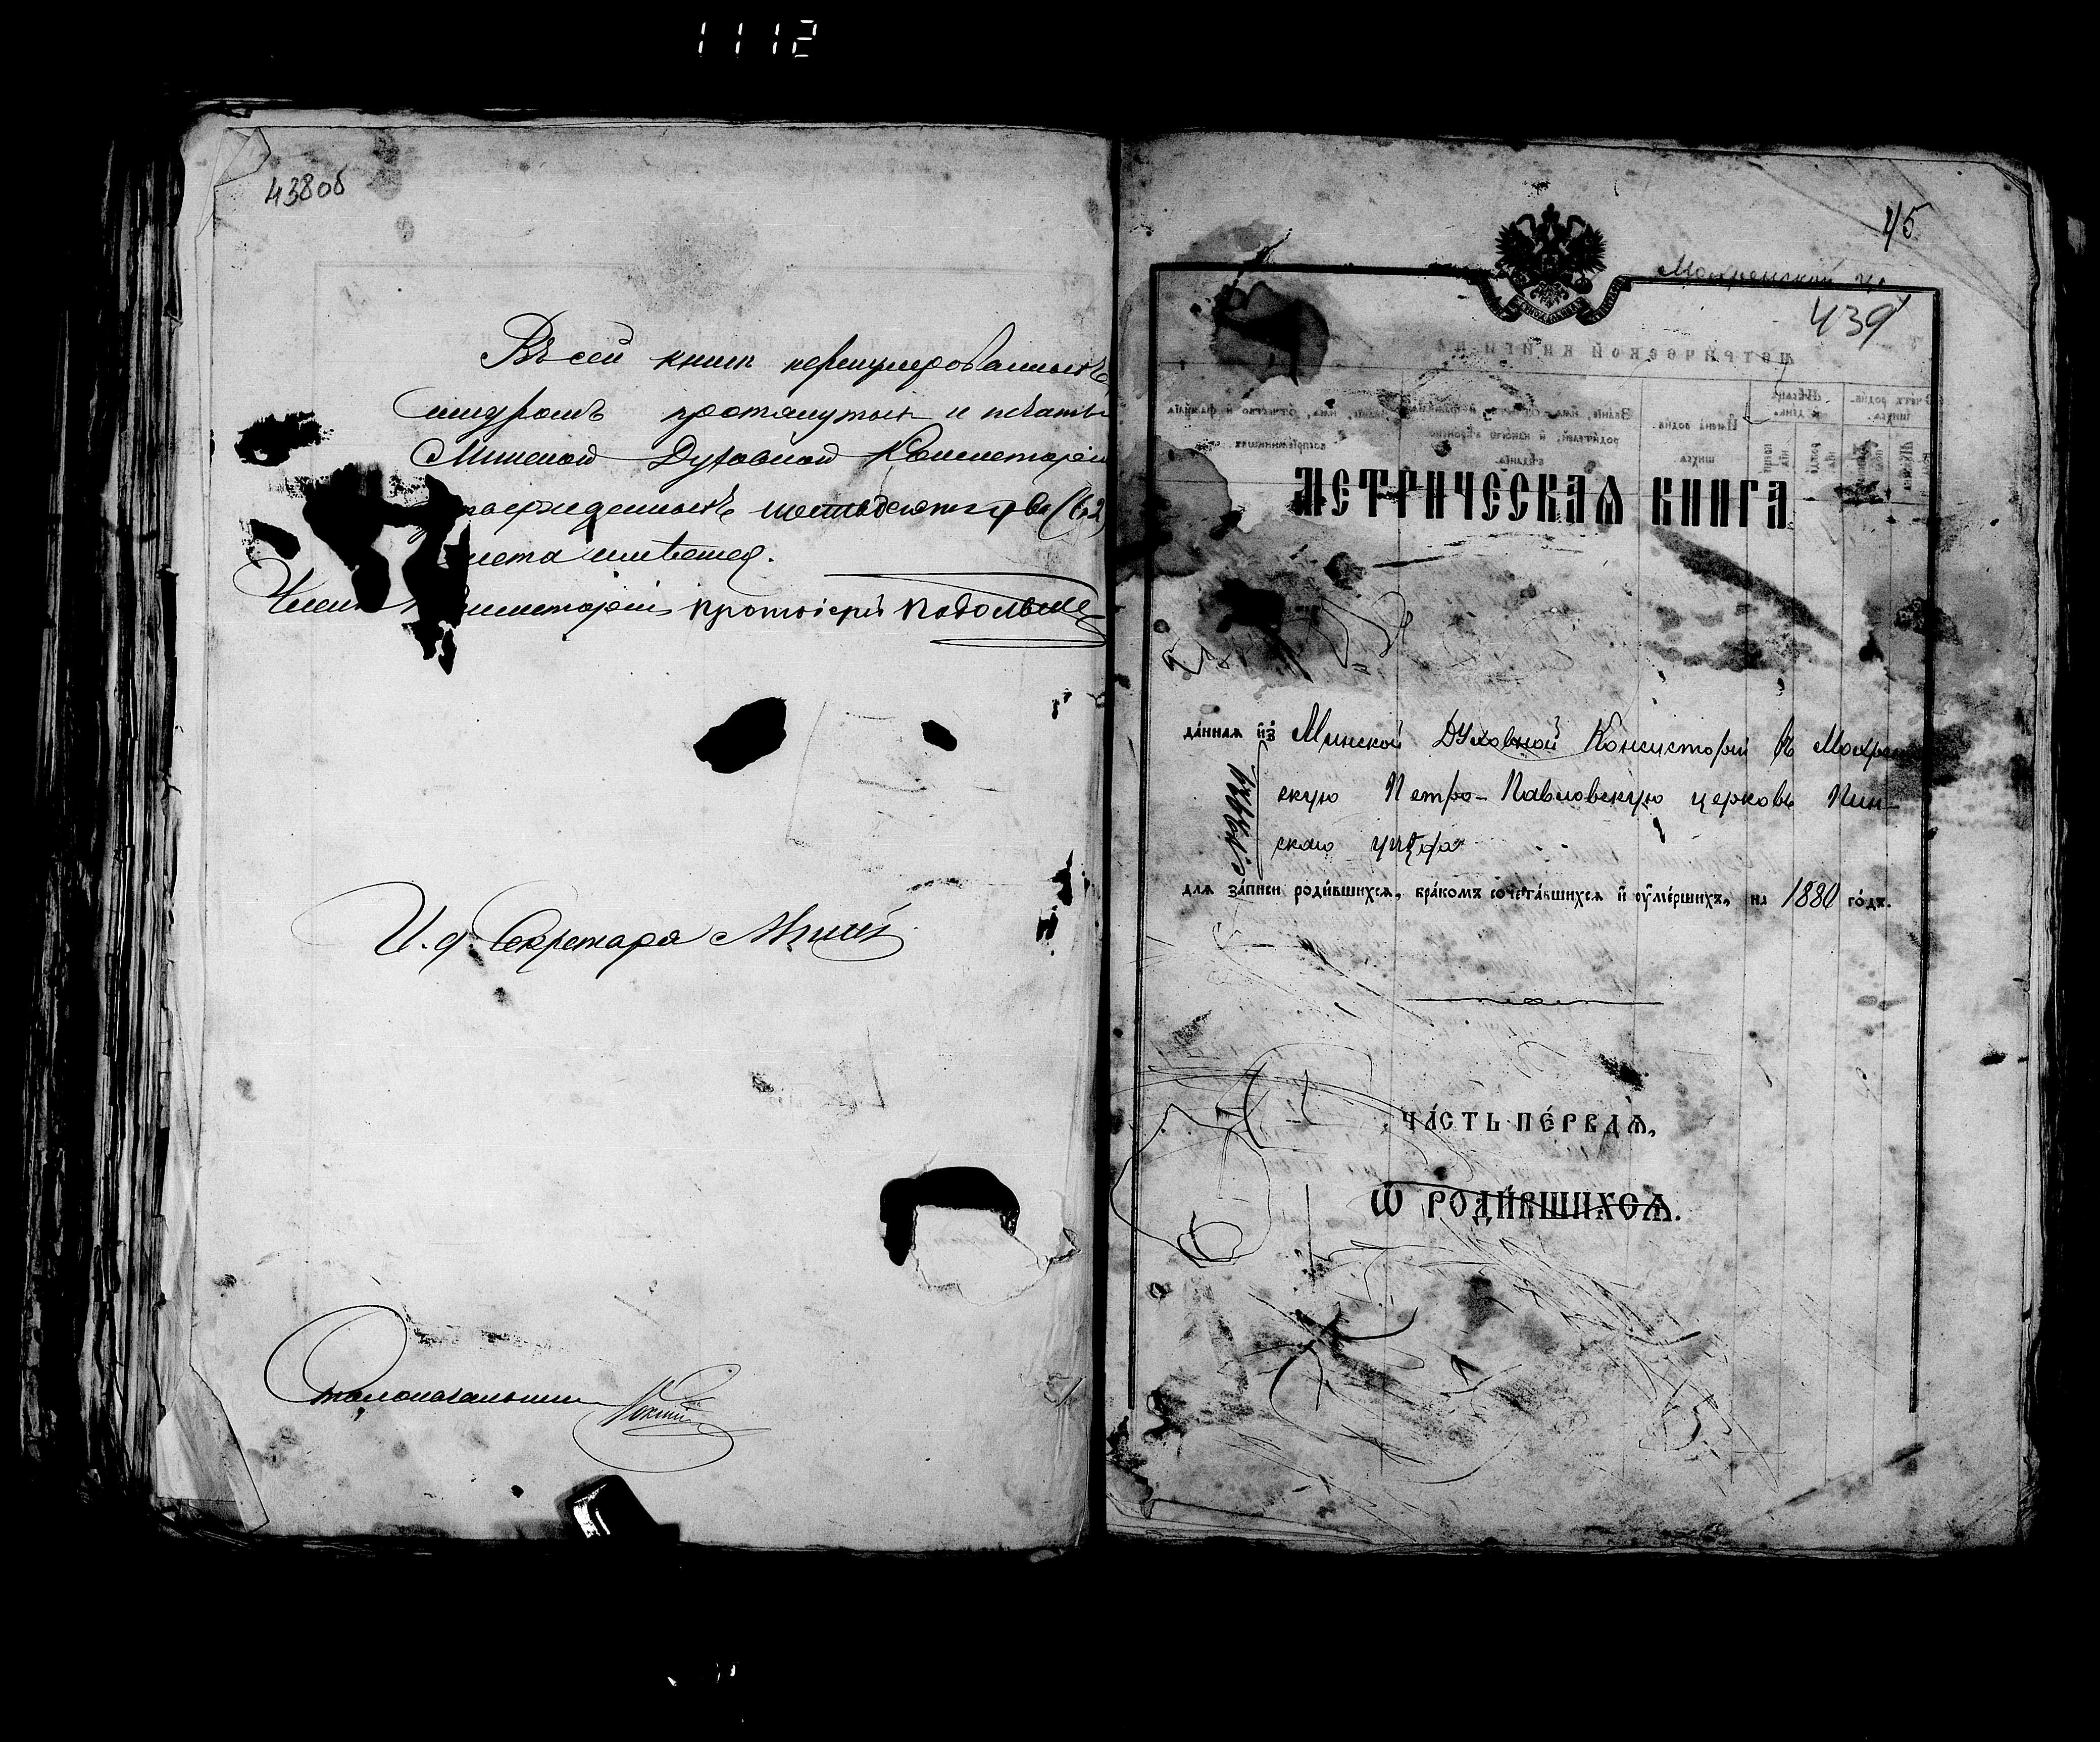 1112
438об
Въ сей книгѣ перенумерованныхъ,
шнуромъ протянутыхъ и печатью
Минской Духовной Консисторіи
шестьдесятъ два (62)
листа имѣется.
Членъ Консисторіи Протоіерей
И. д. Секретаря
Столоначальникъ
45
Мохренской ц.
439
МЕТРИЧЕСКАѦ КНИГА
да́ннаѧ и҆з̾ Минской Духовной Консисторіи въ Мохрен
скую Петро-Павловскую церковь Пин-
скаго уѣзда
для за́писи роди́вшихсѧ, бра́комъ сочета́вшихсѧ и҆ ᲂу҆ме́ршихъ, на 1880 го́дъ.
ЧА́СТЬ ПЕ́РВАѦ,
Ѡ҆ РОДИ́ВШИХСѦ.